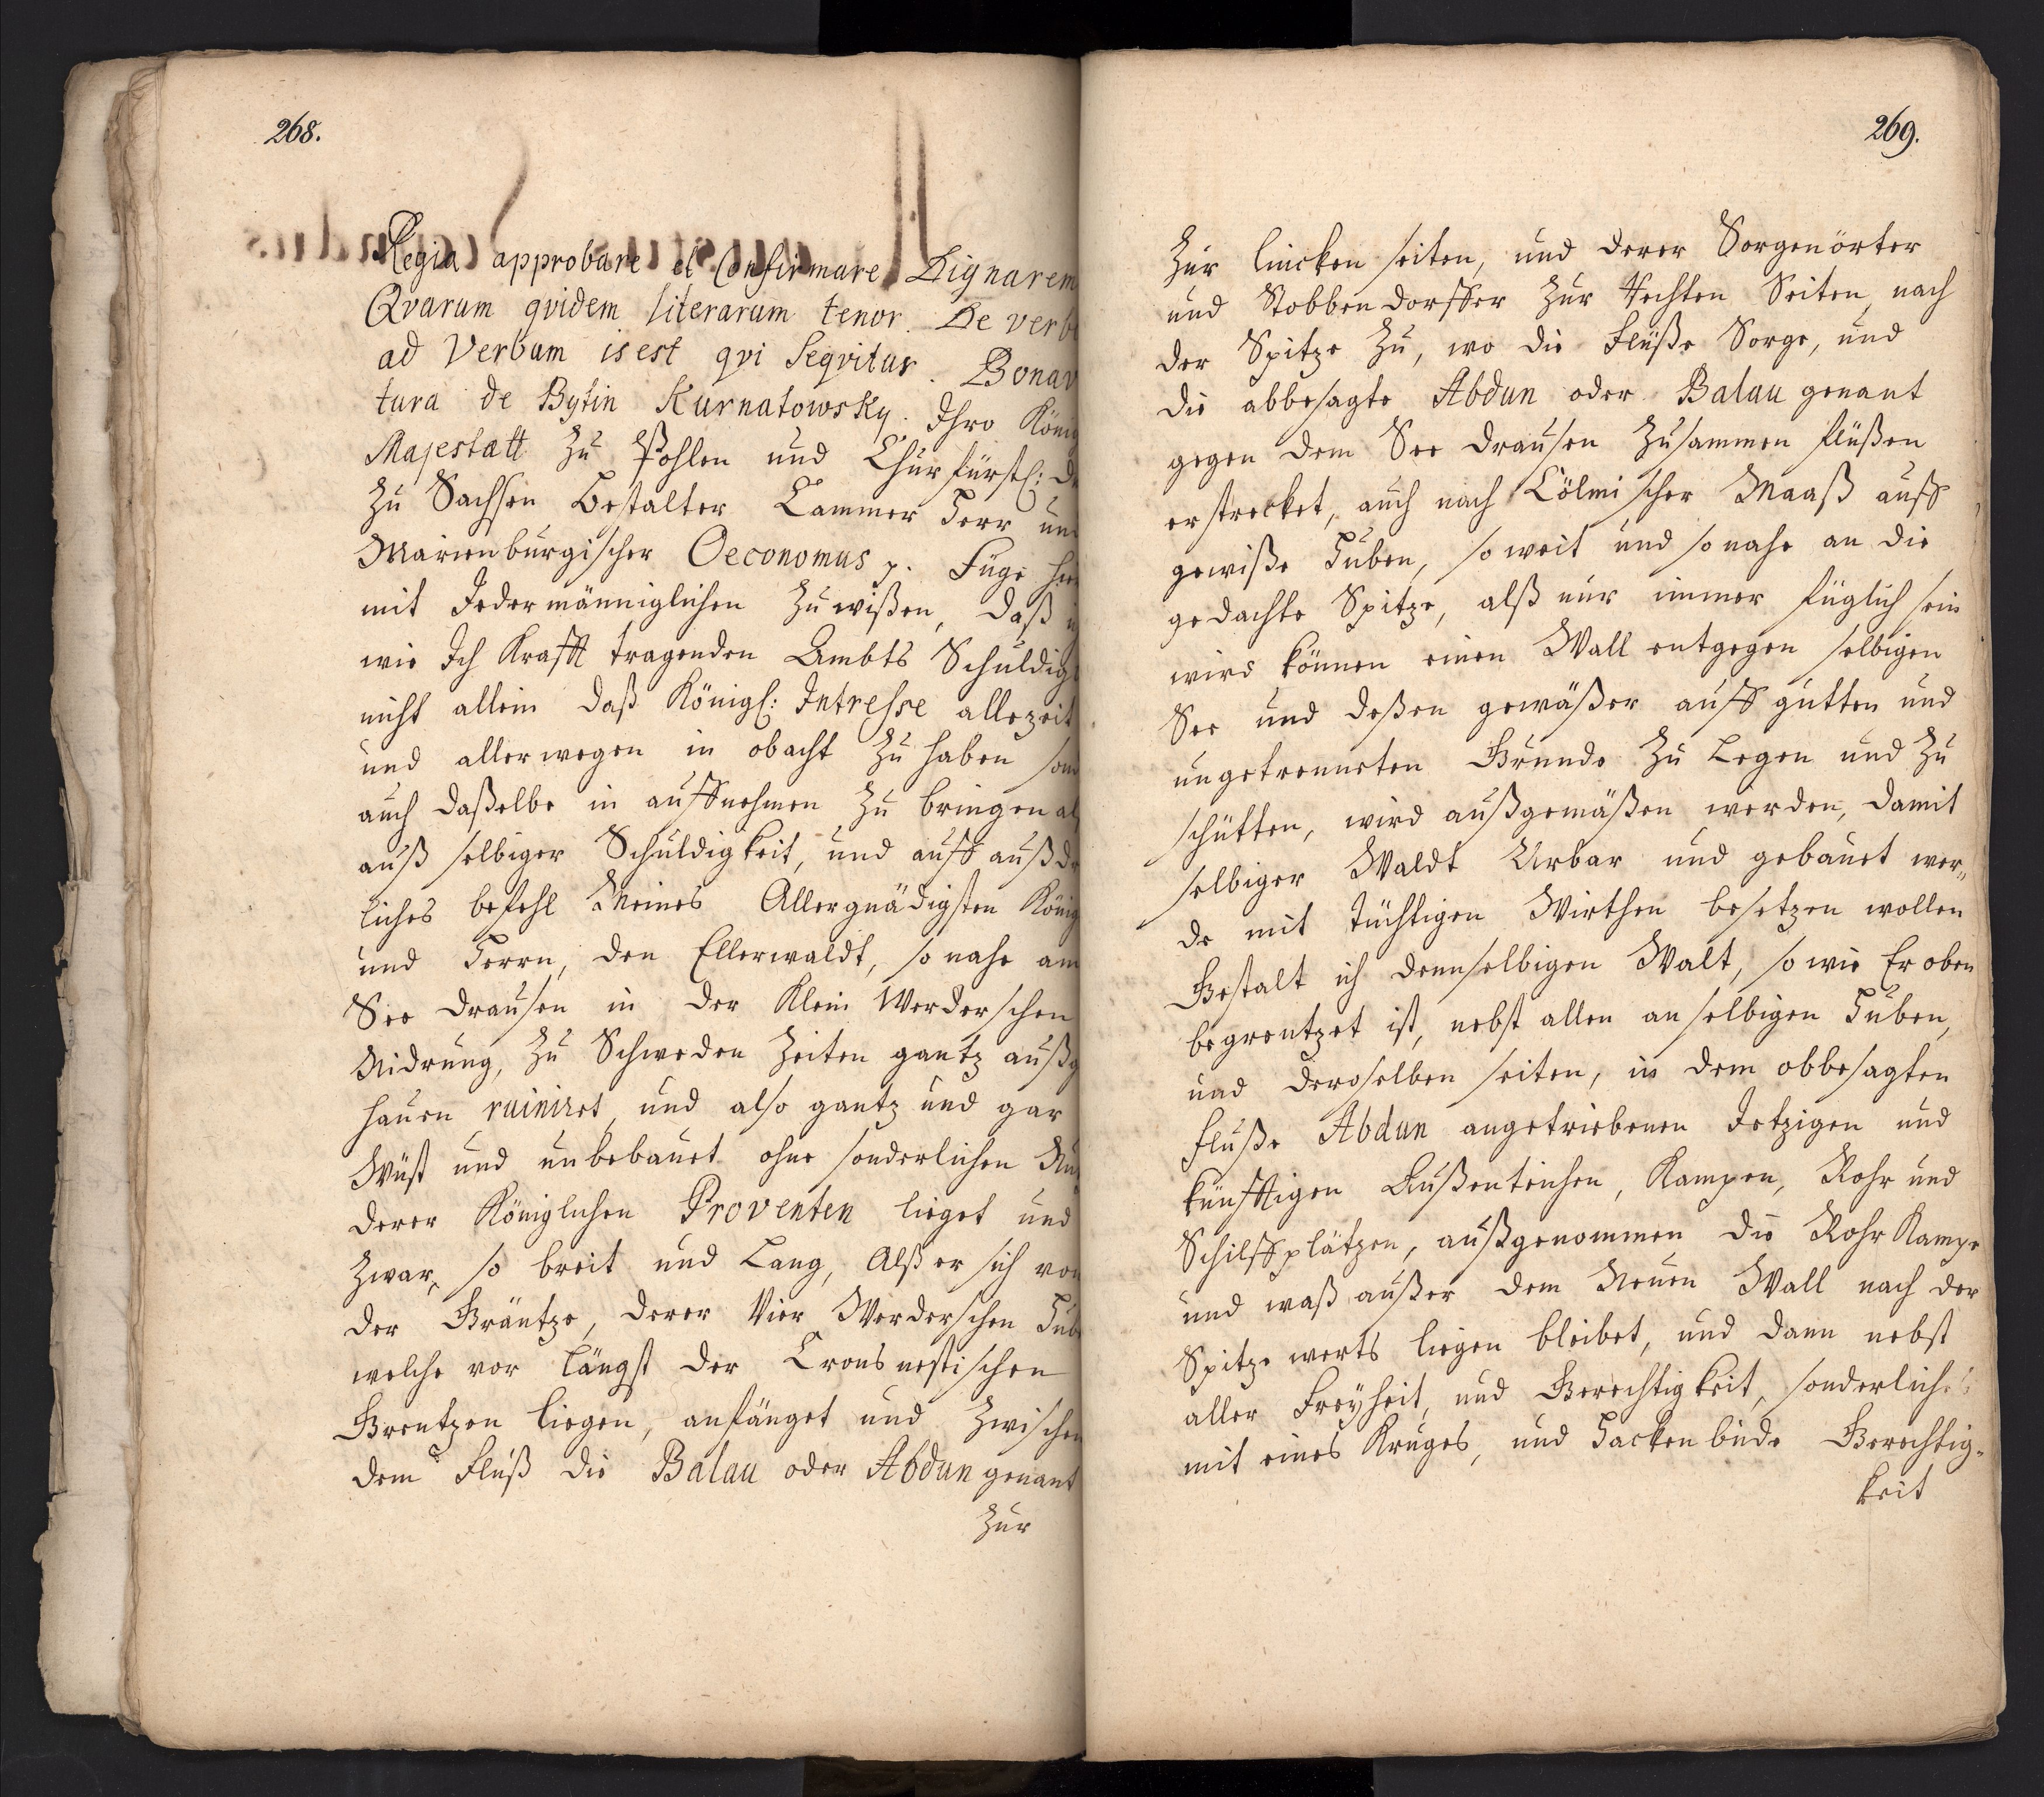 268.
Regia approbare et Confirmare Dignarem
Qvarum qvidem literarum tenor. De verb
ad Verbum is est qvi Seqvitur. Bonav
tura de Bytin Kurnatowsky. Ihro König
Majestatt Zu Pohlen und Churfürstl: D
Zu Sachsen Bestalter Cammer Herr und
Marienburgischer Oeconomus p. Fuge hie
mit Jedermänniglichen Zu wißen, daß
wie Ich Krafft tragenden Ambts Schuldig
nicht allein daß Königl: Intresse allezeit
und allerwegen in obacht Zu haben son
auch daßelbe in auffnehmen Zu bringen al
auß selbiger Schuldigkeit, und auff außdr
liches befehl Meines Allergnädigsten König
und Herrn, den Ellerwaldt, so nahe am
See Drausen in der Klein Werderschen
Nidrung, Zu Schweden Zeiten gantz außg
hauen ruiniret, und also gantz und gar
Wüst und unbebauet ohne sonderlichen Nu
derer Königlichen Proventen lieget und
Zwar, so breit und Lang, Alß er sich von
der Gräntze, derer Vier Werderschen Hub
welche vor Längst der Cronsnestischen
Grentzen liegen, anfänget und Zwischen
dem Fluß die Balau oder Abdun genant
Zur
269.
Zur lincken seiten, und derer Sorgenörter
und Stobbendorffer Zur Rechten Seiten, nach
der Spitze Zu, wo die Flüße Sorge, und
die abbesagte Abdun oder Balau genant
gegen dem See Drausen Zusammen flüßen
erstrecket, auch nach Cölmischer Maaß auff
gewiße Huben, so weit und so nahe an die
gedachte Spitze, alß nur immer füglich sein
wird können einen Wall entgegen selbigen
See und deßen gewäßer auff gutten und
ungetrenneten Grunde Zu Legen und Zu
schütten, wird außgemäßen werden, damit
selbiger Waldt Urbar und gebauet wer„
de mit tüchtigen Wirthen besetzen wollen
Gestalt ich dennselbigen Walt, so wie Er oben
begrentzet ist, nebst allen an selbigen Huben,
und deroselben seiten, in dem obbesagten
Fluße Abdun angetriebenen Jetzigen und
künfftigen Außenteichen, Kampen, Rohr und
Schilffplätzen, außgenommen die Rohr Kampe
und waß außer dem Neuen Wall nach der
Spitze werts liegen bleibet, und dann nebst
aller Freyheit, und Gerechtigkeit, sonderliches
mit eines Kruges, und Hackenbude Gerechtig-
keit